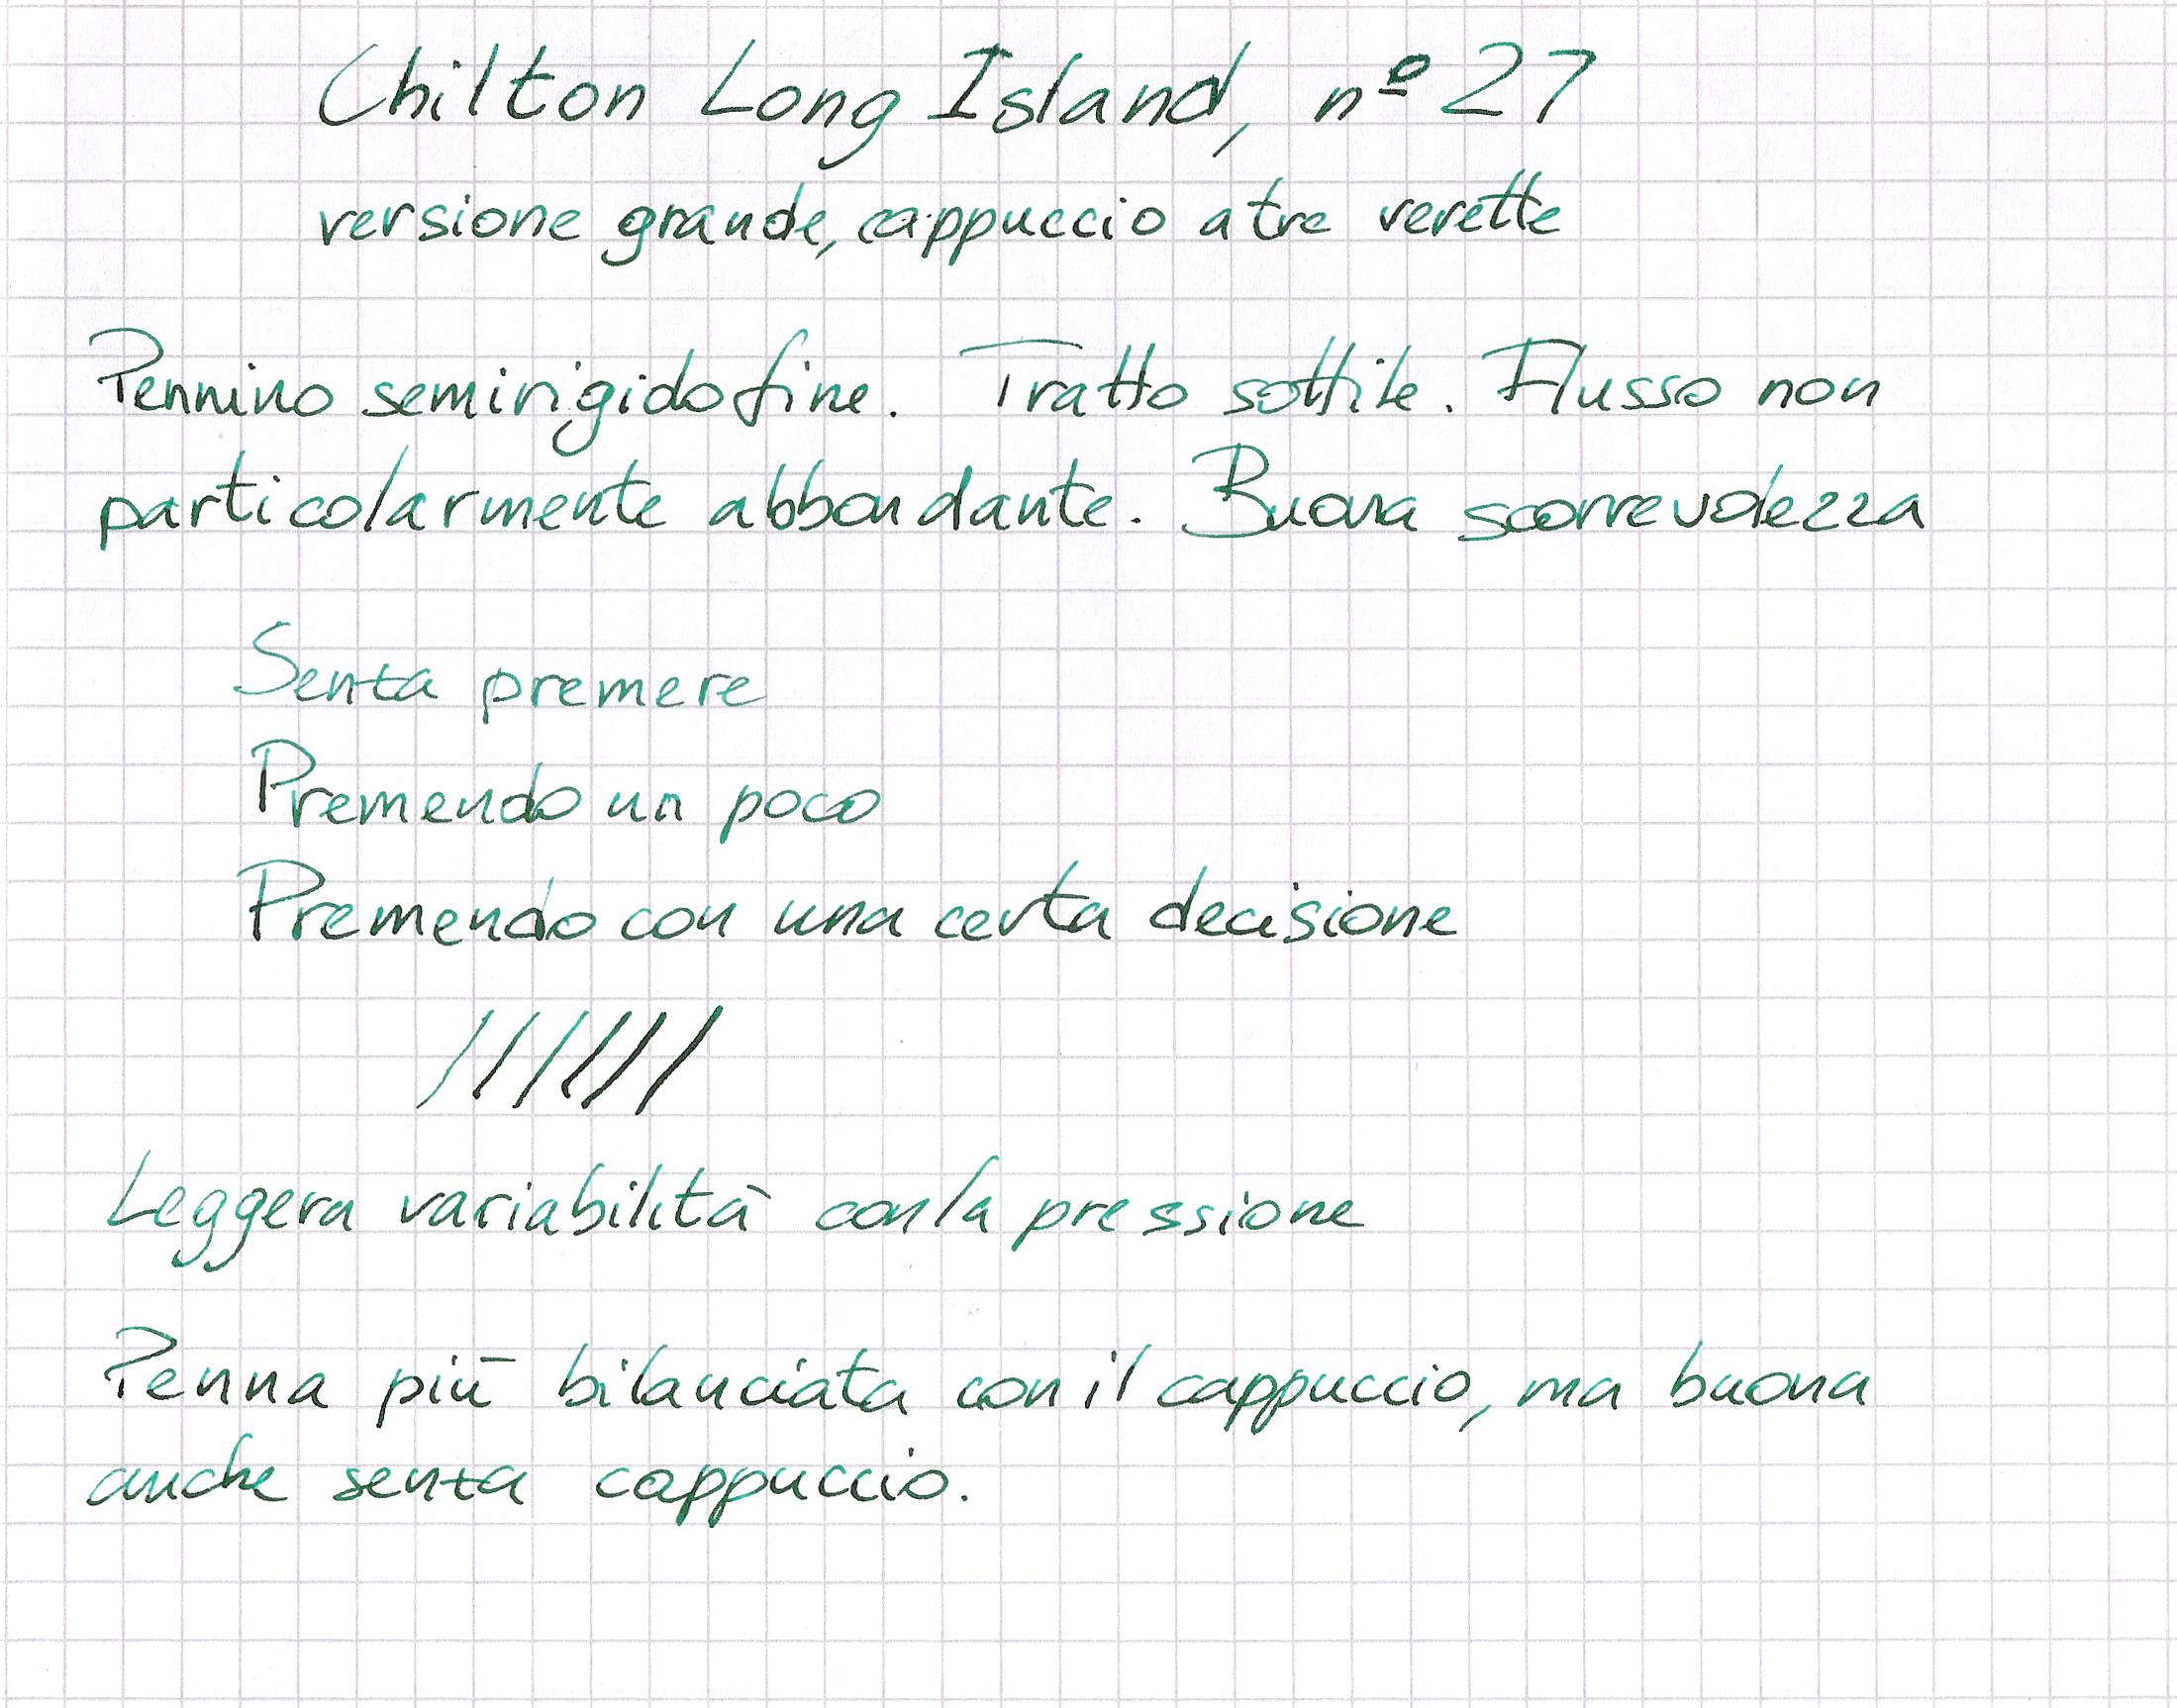 Chilton Long Island, nº 27
versione grande, cappuccio a tre verette
Pennino semirigido fine. Tratto sottile. Flusso non
particolarmente abbondante. Buona scorrevolezza
Senza premere
Premendo un poco
Premendo con una certa decisione
Leggera variabilità con la pressione
Penna più bilanciata con il cappuccio, ma buona
anche senza cappuccio.